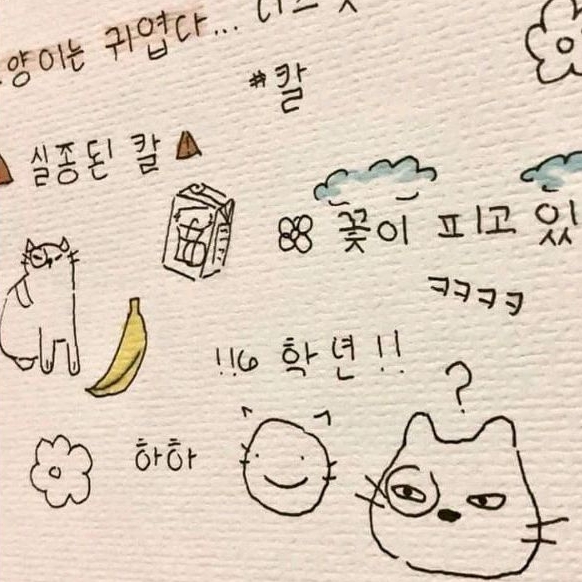 양이는 귀엽다...
#칼
실종된 칼
꽃이 피고 있
ㅋㅋㅋㅋ
!!6 학년!!
?
하하